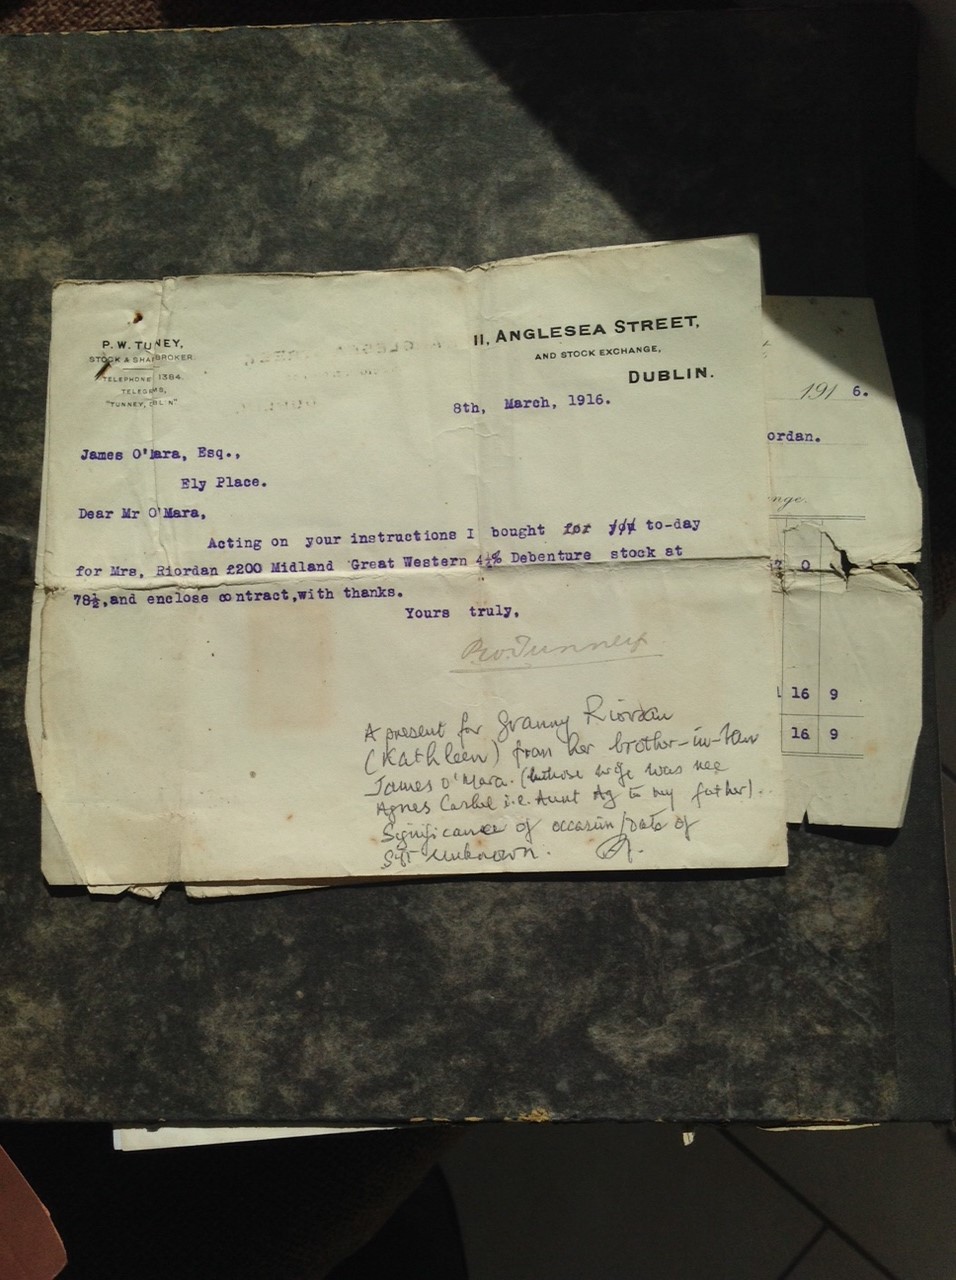 P. W. TUNNEY,
STOCK & SHAREBROKER.
TELEPHONE 1384.
TELEGRAMS,
"TUNNEY, DUBLIN"
11, ANGLESEA STREET,
AND STOCK EXCHANGE,
DUBLIN.
8th, March, 1916.
James O'Mara, Esq.,
Ely Place.
Dear Mr O'Mara,
Acting on your instructions I bought for you to-day
for Mrs, Riordan £200 Midland Great Western 4½% Debenture stock at
78½,and enclose contract,with thanks.
Yours truly,
P.W. Tunney
A present for Granny Riordan
(Kathleen) from her brother-in-law
James O'Mara. (whose wife was nee
Agnes Cashel i.e. Aunt Ag to my father).
Significance of occasion/date of
gift unknown.
191 6.
ordan.
nge.
7 0
16 9
16 9